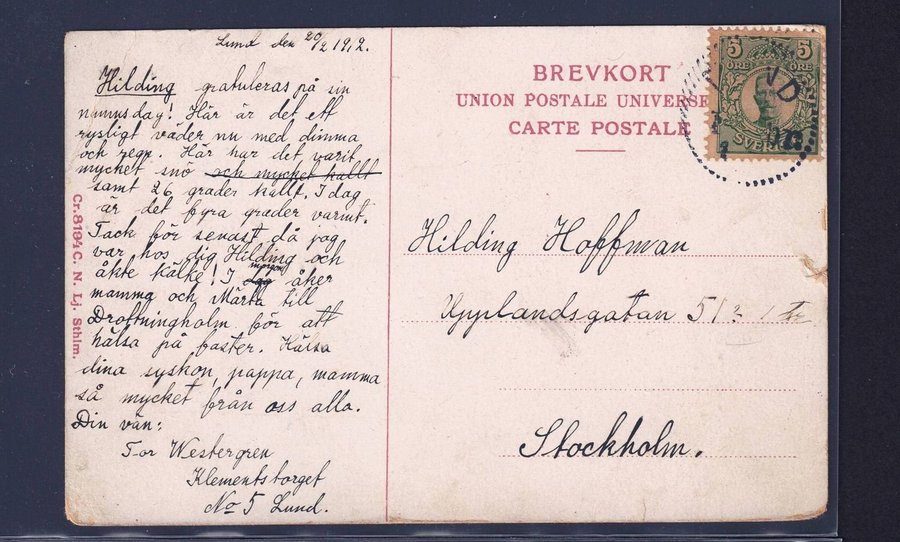 Lund den 20/2 1912.
Hilding gratuleras på sin
namnsdag! Här är det ett
rysligt väder nu med dimma
och regn. Här har det varit
mycket snö och mycket kallt
samt 26 grader kallt. I dag
är det fyra grader varmt.
Tack för senast då jag
var hos dig Hilding och
åkte kälke! I morgon åker
mamma och Märta till
Drottningholm för att
hälsa på faster. Hälsa
dina syskon, pappa, mamma
så mycket från oss alla.
Din vän:
Tor Westergren
Klementstorget
No 5 Lund.
Cr. 8194 C. N. Lj. Sthlm.
BREVKORT
UNION POSTALE UNIVERSE
CARTE POSTALE
5 5
ÖRE ÖRE
SVERIGE
Hilding Hoffman
Upplandsgatan 51
Stockholm.